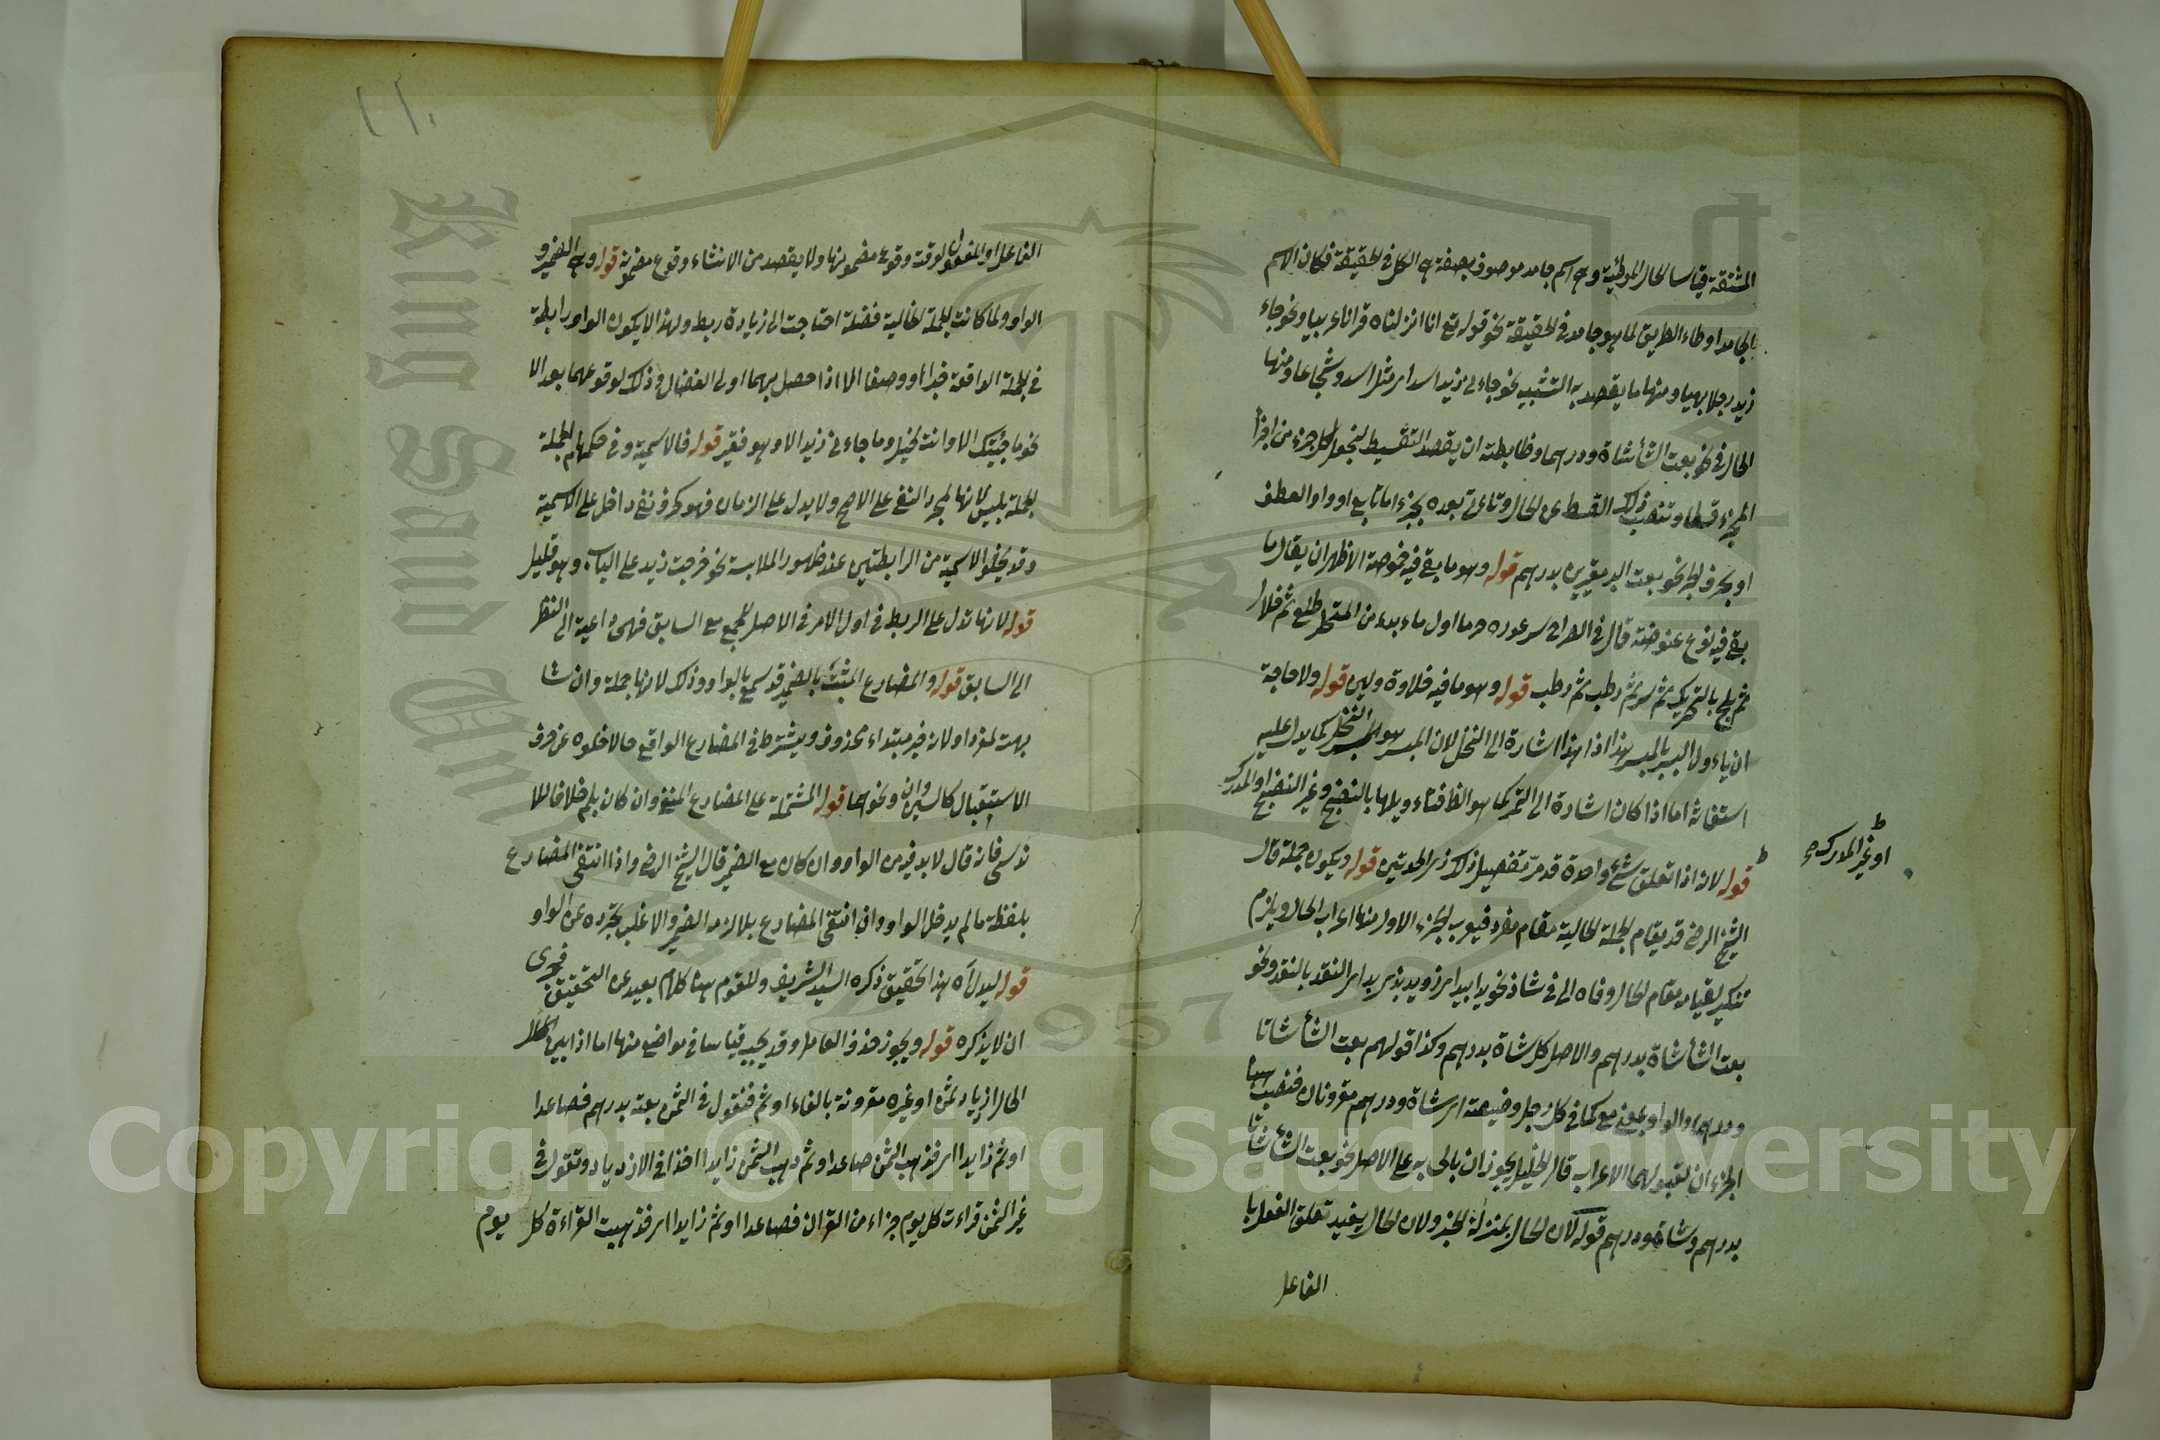 المشتقة قياسا الحال الموطئة وهى اسم جامد موصوف بصفة هى الحال فى الحقيقة فكان الاسم
الجامد اوطاء الطريق لما هو جامد فى الحقيقة نحو قوله تع انا انزلناه قرانا عربيا ونحو جاء
زيد رجلا بهيا ومنها ما يقصد به التشبيه نحو جاءنى زيد اسدا اى مثل اسد وشجاعا ومنها
الحال فى نحو بعت الشأ شاة ودرهما وظابطته ان يقصد التقسيط لنجعل لكل جزء من اجزأ
المجزء قسطا وتنصب ذلك القسط على الحال وتاءتى بعده بجزء اما تابع اوواو العطف
او بحرف الجر نحو بعت البر مقيزين بدرهم قوله وهو ما بقى فيه حموضة الاظهر ان يقال ما
بقى فيه نوع عفوضة قال فى الصراح سر عوره خرما اول ماء بدء من النخل طلع ثم خلال
ثم بلح بالتحريك ثم بسر ثم رطب ثم رطب قوله وهو ما فيه حلاوة ولين قوله ولا حاجة
ان ياءول البسر بالمبسر هذا اذا هذا اشارة الى النخل لان المبسر هو النخل كما يدل عليه
استقائه اما اذا كان اشارة الى التمر كما هو الظ فتاءويلها بالنضج وغير النضيج والمدرك
قوله لانه اذا تعلق بشئ واحدة قد مر تفصيل ذلك ذى الحدثين قوله ويكون جملة قال
او غير المدرك صح
الشيخ الرضى قد يقام الجملة الحالية مقام مفرد فيعرب الجزء الاول منها اعراب الحال ويلزم
تنكيره لقيامه مقام الحال وفاه الى فى شاذ نحو يدا بيد اى ذو يد بذى يد اى النقد بالنقد ونحو
بعت الشأ شاة بدرهم والاصل كل شاة بدرهم وكذا قولهم بعت الشأ شاتا
ودرهما والواو بمعنى مع كما فى كل رجل وضيعته اى شاة ودرهم مقرونان فنصب هنا
الجزءان لقبولهما الاعراب قال الخليل يجوز ان ياتى به على الاصل نحو بعت الشاء شاتا
بدرهم وشاة ودرهم قوله لان الحال بمنزلة الخبر ولان الحال يفيد تعلق الفعل با
الفاعل
١١٠
الفاعل او المفعول لوقت وقوع مضمونها ولا يقصد من الانشاء وقوع مضمونه قوله وهى الضمير و
الواو ولما كانت الجملة الحالية فضلة احتاجت الى زيادة ربط ولهذا لا يكون الواو رابطة
فى الجملة الواقعة خبرا او وصفا الا اذا حصل بهما ادنى انفصال وذلك لوقوعهما بعد الا
نحو ما جئتك الا وانت بخيل وما جاءنى زيد الا وهو فقير قوله فالاسمية وفى حكمها الجملة
الجملة بليس لانها لمجرد النفى على الاصح ولا يدل على الزمان فهو كحرف نفى داخل على الاسمية
وقد يخلو الاسمية من الرابطتين عند ظهور الملابسة نحو خرجت زيد على الباب وهو قليل
قوله لانها تدل على الربط فى اول الامر فى الاصل للجمع مع السابق فهى داعية الى النظر
الى السابق قوله والمضارع المثبت بالضمير قد سمع بالواو وذلك لانها جملة وان شا
بهت لمفرد او لانه خبر مبتداء محذوف ويشترط فى المضارع الواقع حالا خلوه عن حرف
الاستقبال كالسين ولن ونحوهما قوله المشتملة على المضارع المنفى وان كان بلم خلافا للا
ندلسى فانه قال لابد فيه من الواو وان كان مع الضمير قال الشيخ الرضى واذا انتفى المضارع
بلفظة ما لم يدخل الواو وان انتفى المضارع بلا لزمه الضمير والاغلب تجرده عن الواو
قوله ليدل اه هذا تحقيق ذكره السيد الشريف وللقوم هنا كلام بعيد عن التحقيق فحرى
ان لا يذكره قوله ويجوز حذف العامل وقد يجب قياسا فى مواضع منها اما اذا بين الحال
الحال ازدياد ثمن او غيره مقرونة بالفاء او ثم فتقول فى الثمن بعته بدرهم فصاعدا
او ثم زايدا اى فذهب الثمن صاعدا او ثم ذهب الثمن زايدا اخذا فى الازدياد وتقول فى
غير الثمن قراءت كل يوم جزاء من القران فصاعدا او ثم زايدا اى فذهبت القراءة كل يوم
Copyright © King Saud University
King Saud University
1957